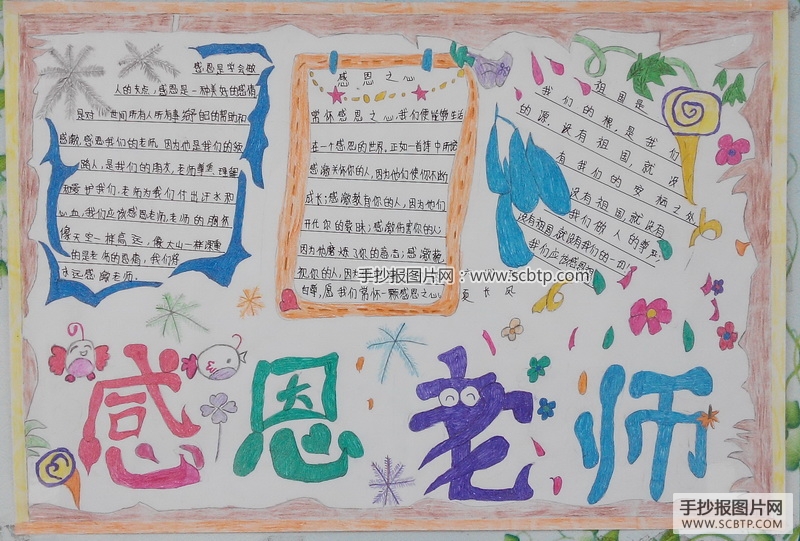 感恩是学会做
人的支点,感恩是一种美好的感情
是对世间所有人所有事给予自己的帮助和
感激,感恩我们的老师,因为他是我们的领
路人,是我们的朋友,老师尊重、理解
和爱护我们,老师为我们付出汗水和
心血,我们应该感恩老师,老师的胸怀
像天空一样高远,像大山一样深重
的是老师的恩情,我们将
永远感激老师。
感恩之心
常怀感恩之心,我们便能够生活
在一个感恩的世界。正如一首诗中所说
感激关怀你的人,因为他们使你不断
成长;感激教育你的人,因为他们
开化你的蒙昧;感激伤害你的人
因为他磨炼了你的意志;感激藐
视你的人,因
自尊,愿我们常怀一颗感恩之心
夏长风
祖国是
我们的根,是我们
的源,没有祖国,就没
有我们的安栖之处
没有祖国就没有
我们做人的尊严
没有祖国,就没有我们的一切
我们应该感恩祖国
手抄报图片网:www.scbtp.com
感恩老师
手抄报图片网
WWW.SCBTP.COM